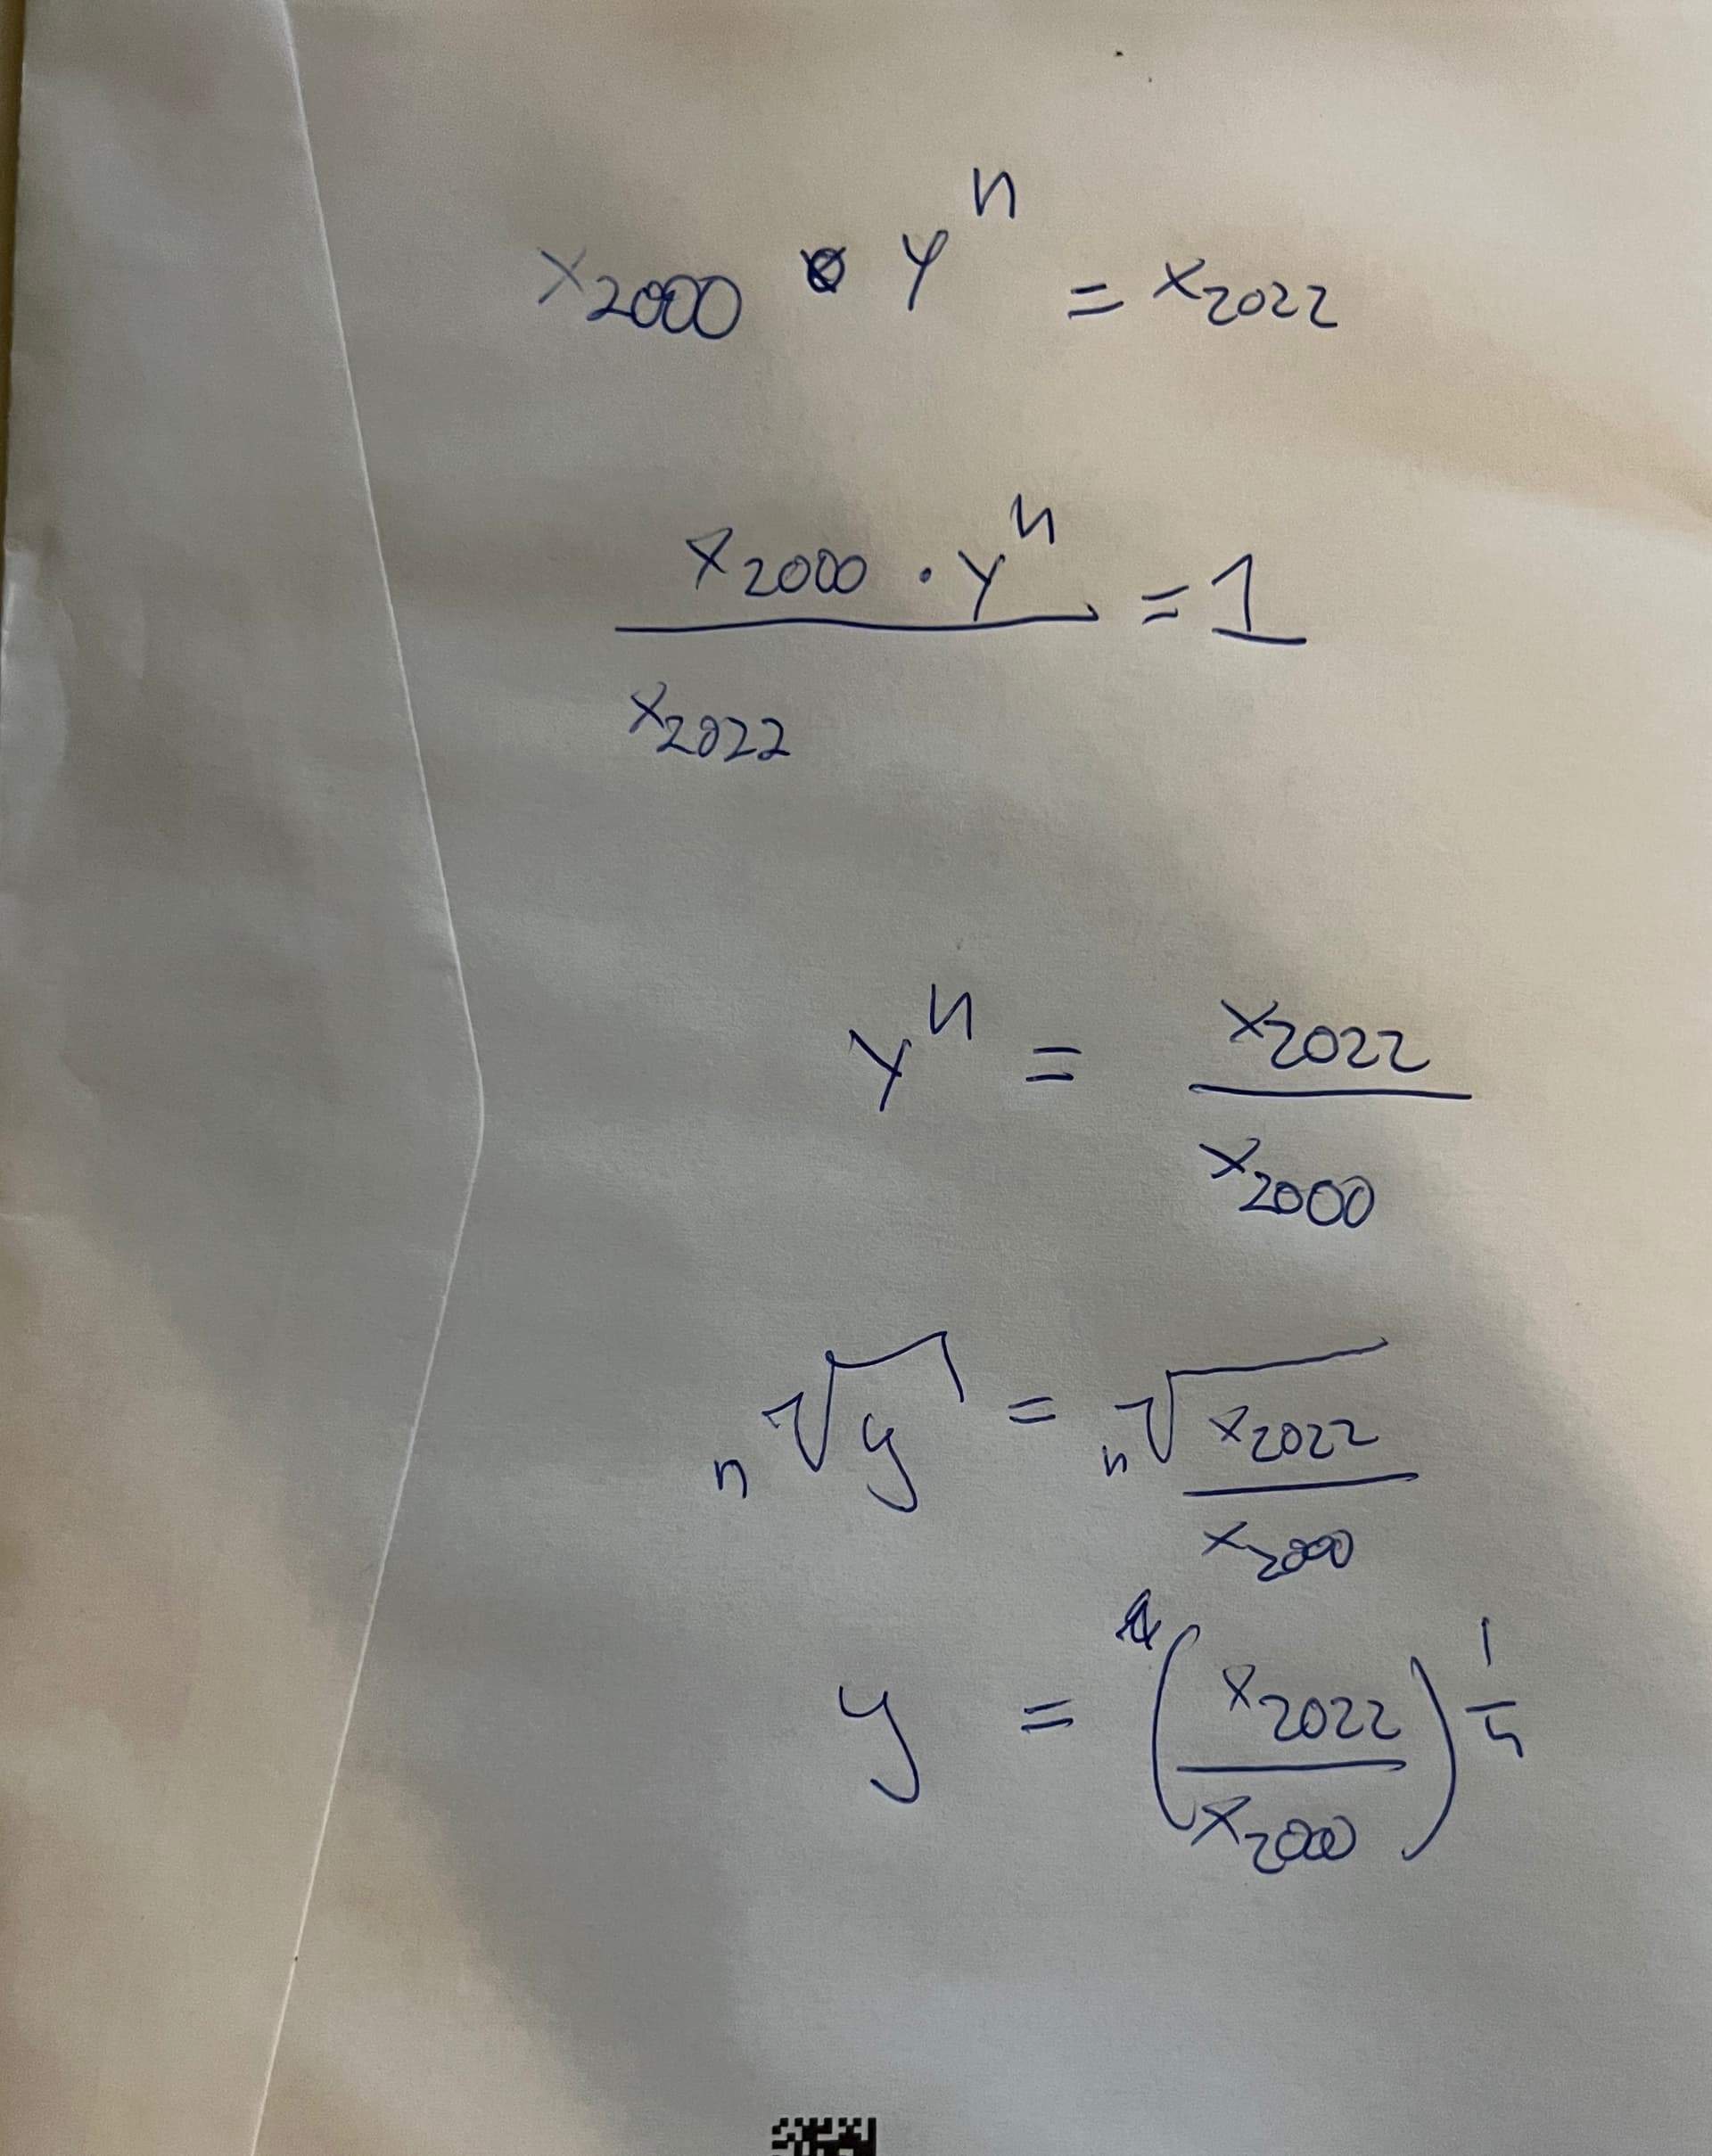 x₂₀₀₀ • yⁿ = x₂₀₂₂
x₂₀₀₀ · yⁿ / x₂₀₂₂ = 1
yⁿ = x₂₀₂₂ / x₂₀₀₀
n√y = n√x₂₀₂₂ / x₂₀₀₀
y = (x₂₀₂₂ / x₂₀₀₀)^(1/n)